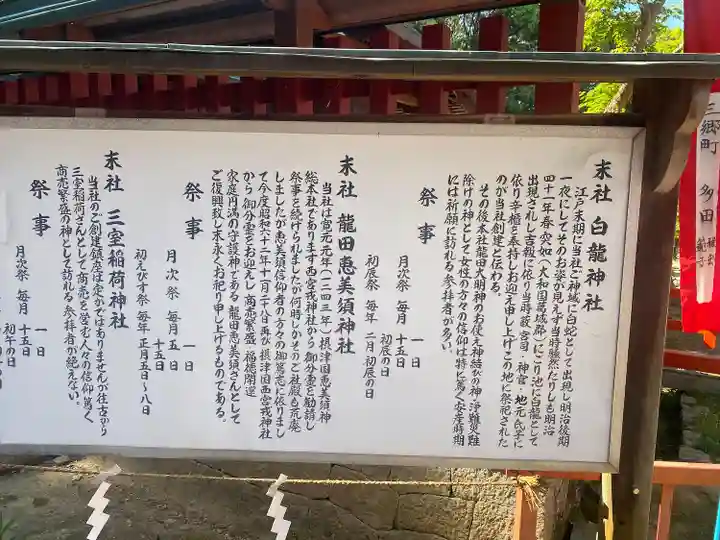 末社 白龍神社
江戸末期に当社ご神域に白蛇として出現し明治後期
一夜にしてそのお姿が見えず当時騒然たりしも明治
四十一年春突如(大和国葛城郡)にごり池に白龍として
出現されし吉報に依り当時蔽宮司・神官・地元氏子に
依り辛櫃を奉持しお迎え申し上げこの地に祭祀された
のが当社創建と伝わる。
その後本社龍田大明神のお使え神結びの神・浄難災難
除けの神として女性の方々の信仰は特に篤く安産時期
には祈願に訪れる参拝者が多い。
祭事
月次祭 毎月 一日
十五日
初辰の日
初辰祭 毎年 二月 初辰の日
末社 龍田恵美須神社
当社は寛元元年(一二四三年)摂津国恵美須神
総本社であります西宮戎神社から御分霊を勧請し
祭事を続けられましたが何時しかそのご社殿も荒廃
しましたが恵美須信仰者の方々の御篤志に依りまし
て今度昭和六十二年十一月二十八日再び摂津国西宮戎神社
から御分霊をお迎えし商売繁盛 福徳開運
家庭円満の守護神である龍田恵美須さんとして
ご復興致し末永くお祀り申し上げるものである。
祭事
月次祭 毎月 一日
五日
十五日
初えびす祭 毎年 正月五日〜八日
末社 三室稲荷神社
当社のご創建鎮座は定かではありませんが往古から
三室稲荷さんとして商売を営む人々の信仰篤く
商売繁盛の神として訪れる参拝者が絶えない。
祭事
月次祭 毎月 一日
十五日
初午の日
三郷町 多田